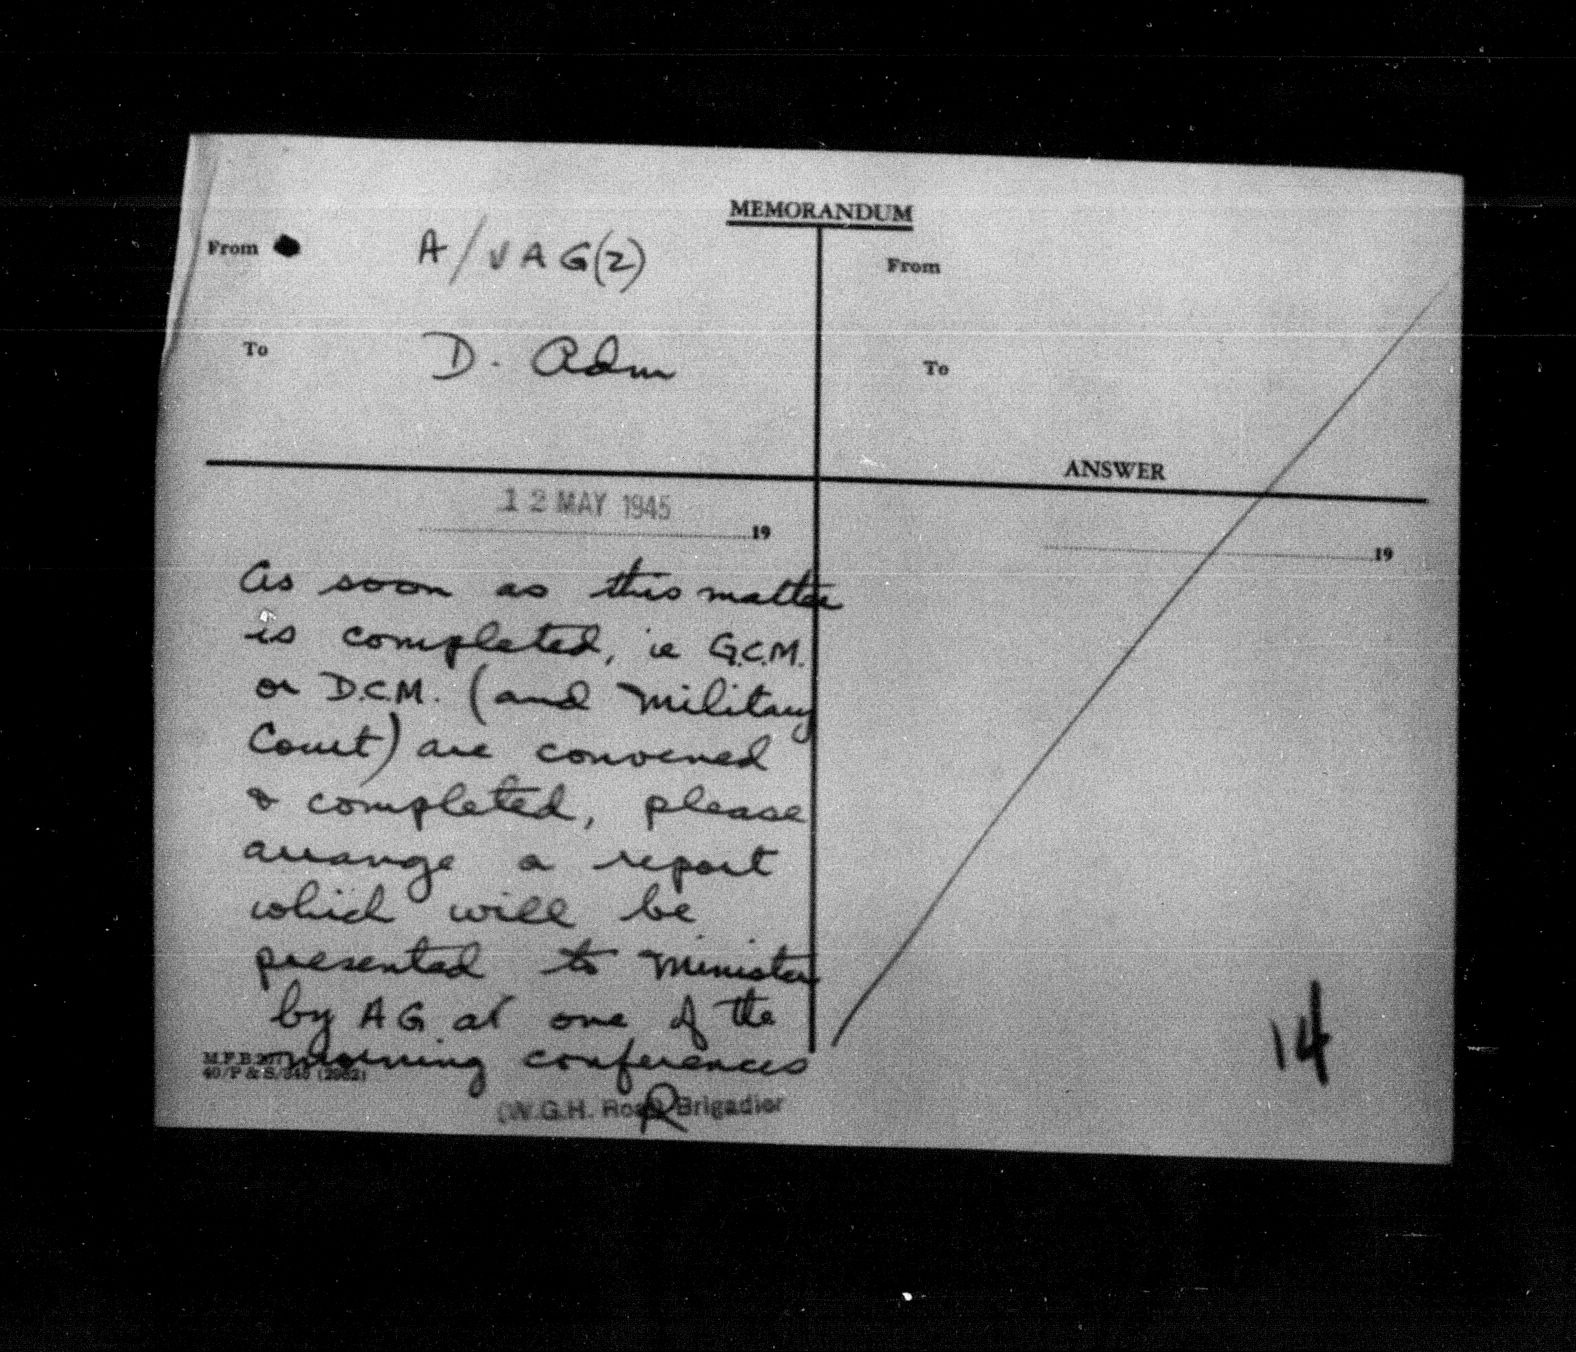 MEMORANDUM
From A/VAG(2)
To D. Adm
From
To
ANSWER
12 MAY 1945
19
19
As soon as this matter
is completed, ie G.C.M.
or D.C.M. (and Military
Court) are convened
& completed, please
arrange a report
which will be
presented to Minister
by AG at one of the
morning conferences
M.F.B.
40/P & S/
(W.G.H. Roaf) Brigadier
R
14